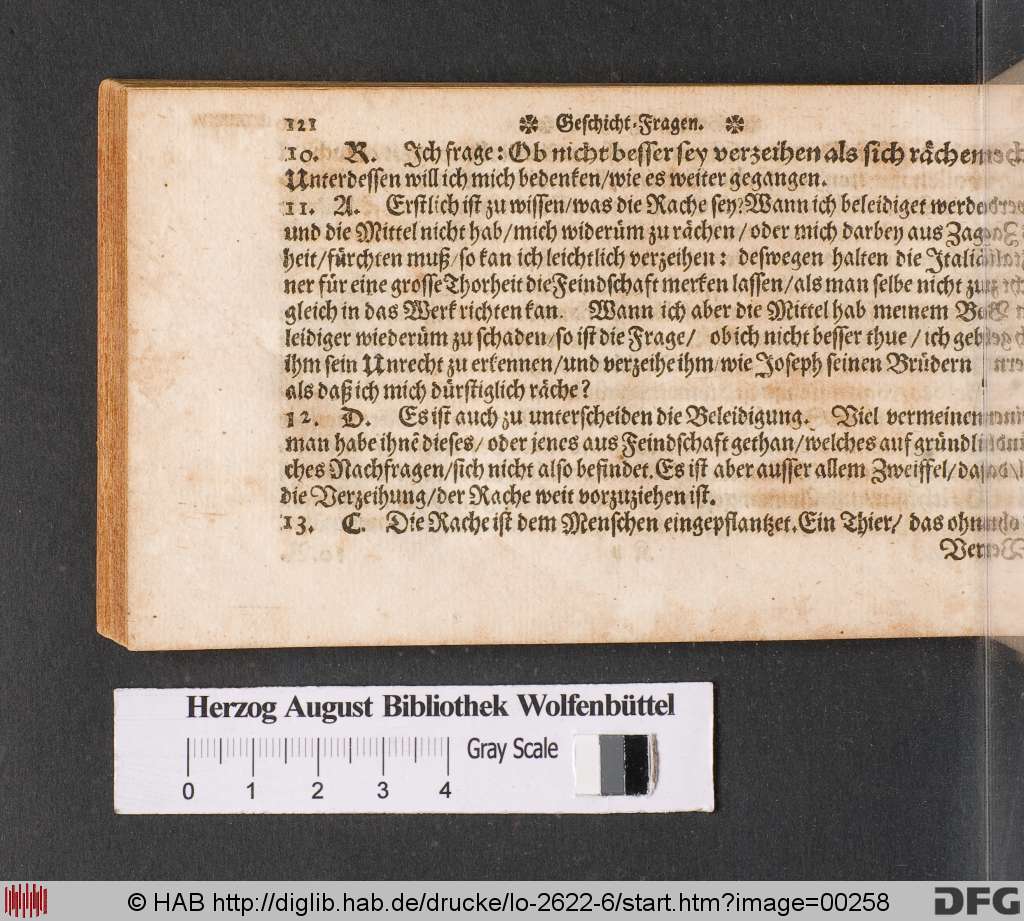 121 ✼ Geschicht-Fragen. ✼
10. R. Ich frage: Ob nicht besser sey verzeihen als sich rächen
Unterdessen will ich mich bedenken/wie es weiter gegangen.
11. A. Erstlich ist zu wissen/was die Rache sey? Wann ich beleidiget werde
und die Mittel nicht hab/mich widerüm zu rächen/oder mich darbey aus Zag-
heit/fürchten muß/so kan ich leichtlich verzeihen: deswegen halten die Italiä-
ner für eine grosse Thorheit die Feindschaft merken lassen/als man selbe nicht zu-
gleich in das Werk richten kan. Wann ich aber die Mittel hab meinem Be-
leidiger wiederüm zu schaden/so ist die Frage/ ob ich nicht besser thue/ich geb
ihm sein Unrecht zu erkennen/und verzeihe ihm/wie Joseph seinen Brüdern
als daß ich mich dürstiglich räche?
12. D. Es ist auch zu unterscheiden die Beleidigung. Viel vermeinen
man habe ihnẽ dieses/oder jenes aus Feindschaft gethan/welches auf gründli-
ches Nachfragen/sich nicht also befindet. Es ist aber ausser allem Zweiffel/daß
die Verzeihung/der Rache weit vorzuziehen ist.
13. C. Die Rache ist dem Menschen eingepflantzet. Ein Thier/ das ohn
Ver-
Herzog August Bibliothek Wolfenbüttel
Gray Scale
0 1 2 3 4
© HAB http://diglib.hab.de/drucke/lo-2622-6/start.htm?image=00258
DFG